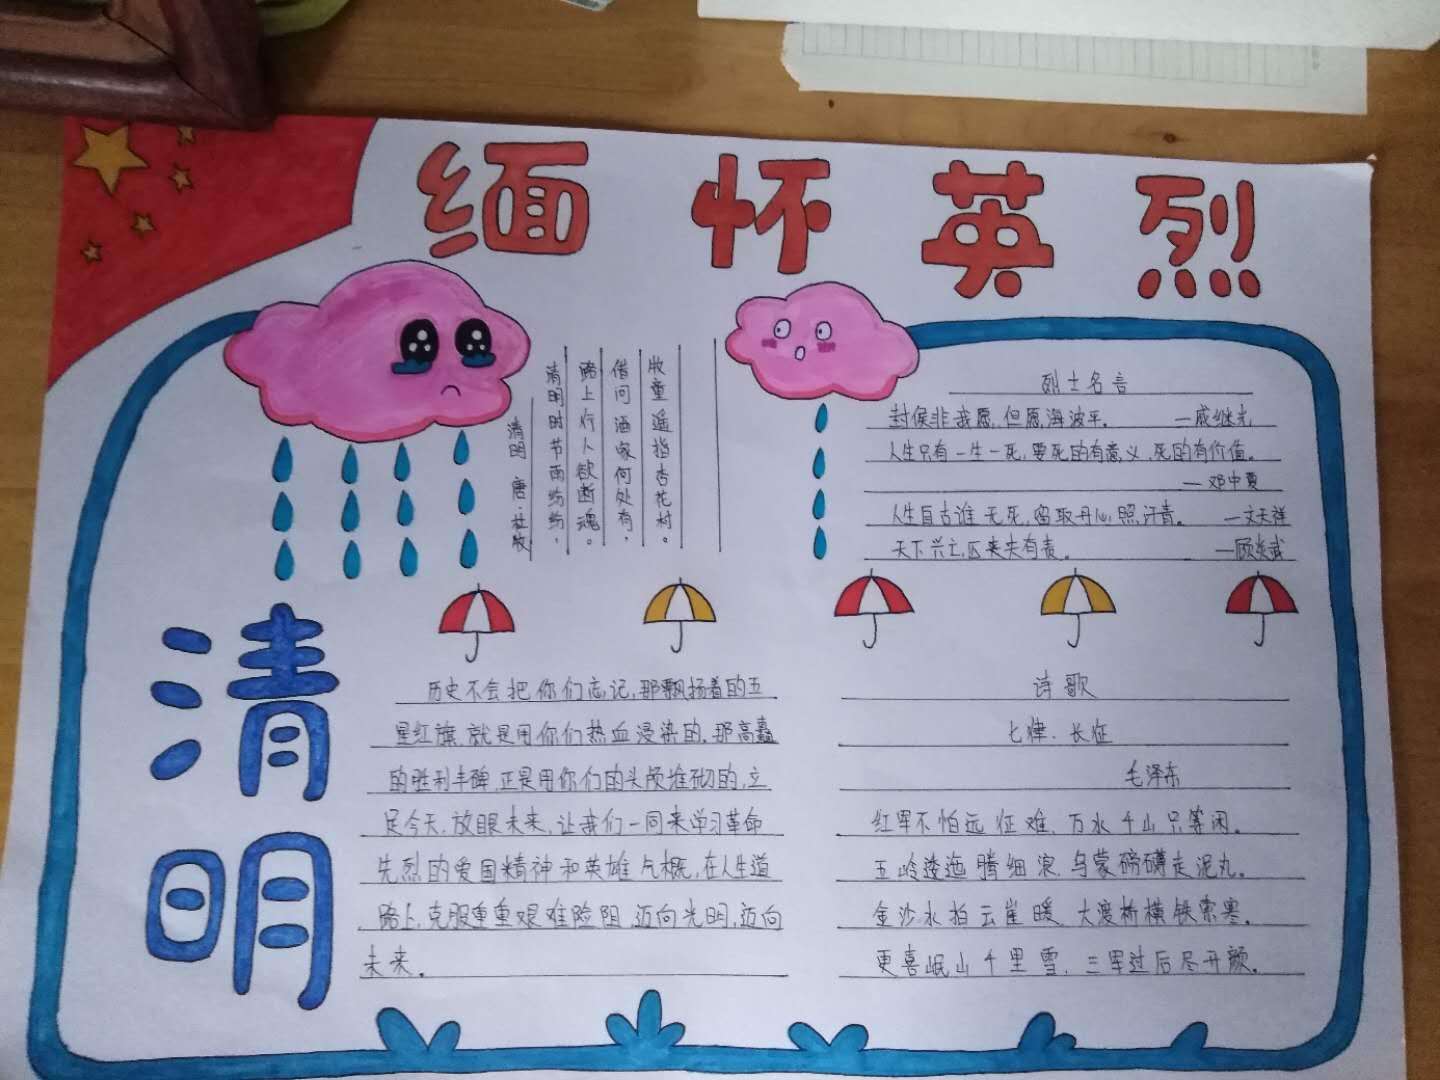 缅怀英烈
清明 唐·杜牧
清明时节雨纷纷，
路上行人欲断魂。
借问酒家何处有，
牧童遥指杏花村。
烈士名言
封候非我愿，但愿海波平。 —戚继光
人生只有一生一死，要死的有意义，死的有价值。
—邓中夏
人生自古谁无死，留取丹心照汗青。 —文天祥
天下兴亡，匹夫有责。 —顾炎武
清明
历史不会把你们忘记，那飘扬着的五
星红旗，就是用你们热血浸染的，那高矗
的胜利丰碑，正是用你们的头颅堆砌的，立
足今天，放眼未来，让我们一同来学习革命
先烈的爱国精神和英雄气概，在人生道
路上，克服重重艰难险阻，迈向光明，迈向
未来。
诗歌
七律·长征
毛泽东
红军不怕远征难，万水千山只等闲。
五岭逶迤腾细浪，乌蒙磅礴走泥丸。
金沙水拍云崖暖，大渡桥横铁索寒。
更喜岷山千里雪，三军过后尽开颜。